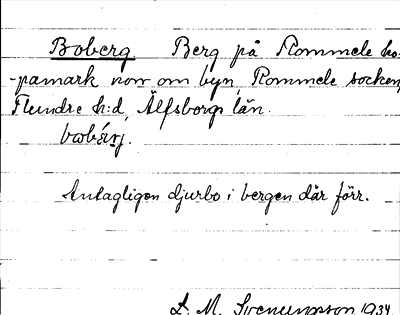 Boberg. Berg på Rommele ko-
-pamark norr om byn, Rommele socken,
Flundre h:d, Älfsborgs län.
Antagligen djurbo i bergen där förr.
L. M. Svenungsson 1934